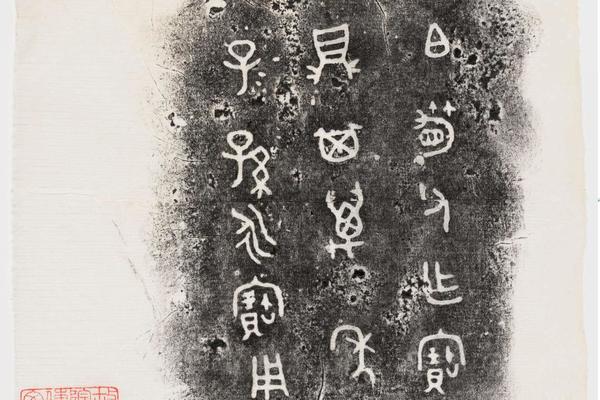 白筍父乍寶
鼎其萬年
子孫永寶用